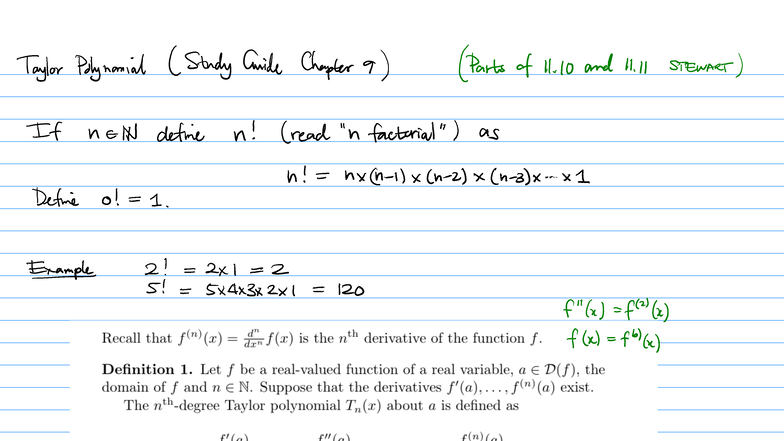 Taylor Polynomial (Study Guide Chapter 9) (Parts of 11.10 and 11.11 STEWART)
If n ∈ ℕ define n! (read "n factorial") as
n! = n×(n-1)×(n-2)×(n-3)×⋯×1
Define 0! = 1.
Example 2! = 2×1 = 2
5! = 5×4×3×2×1 = 120
f''(x) = f⁽²⁾(x)
Recall that f⁽ⁿ⁾(x) = dⁿ/dxⁿ f(x) is the nᵗʰ derivative of the function f. f(x) = f⁽⁰⁾(x)
Definition 1. Let f be a real-valued function of a real variable, a ∈ 𝒟(f), the
domain of f and n ∈ ℕ. Suppose that the derivatives f′(a), . . . , f⁽ⁿ⁾(a) exist.
The nᵗʰ-degree Taylor polynomial Tₙ(x) about a is defined as
f′(a) f″(a) f⁽ⁿ⁾(a)